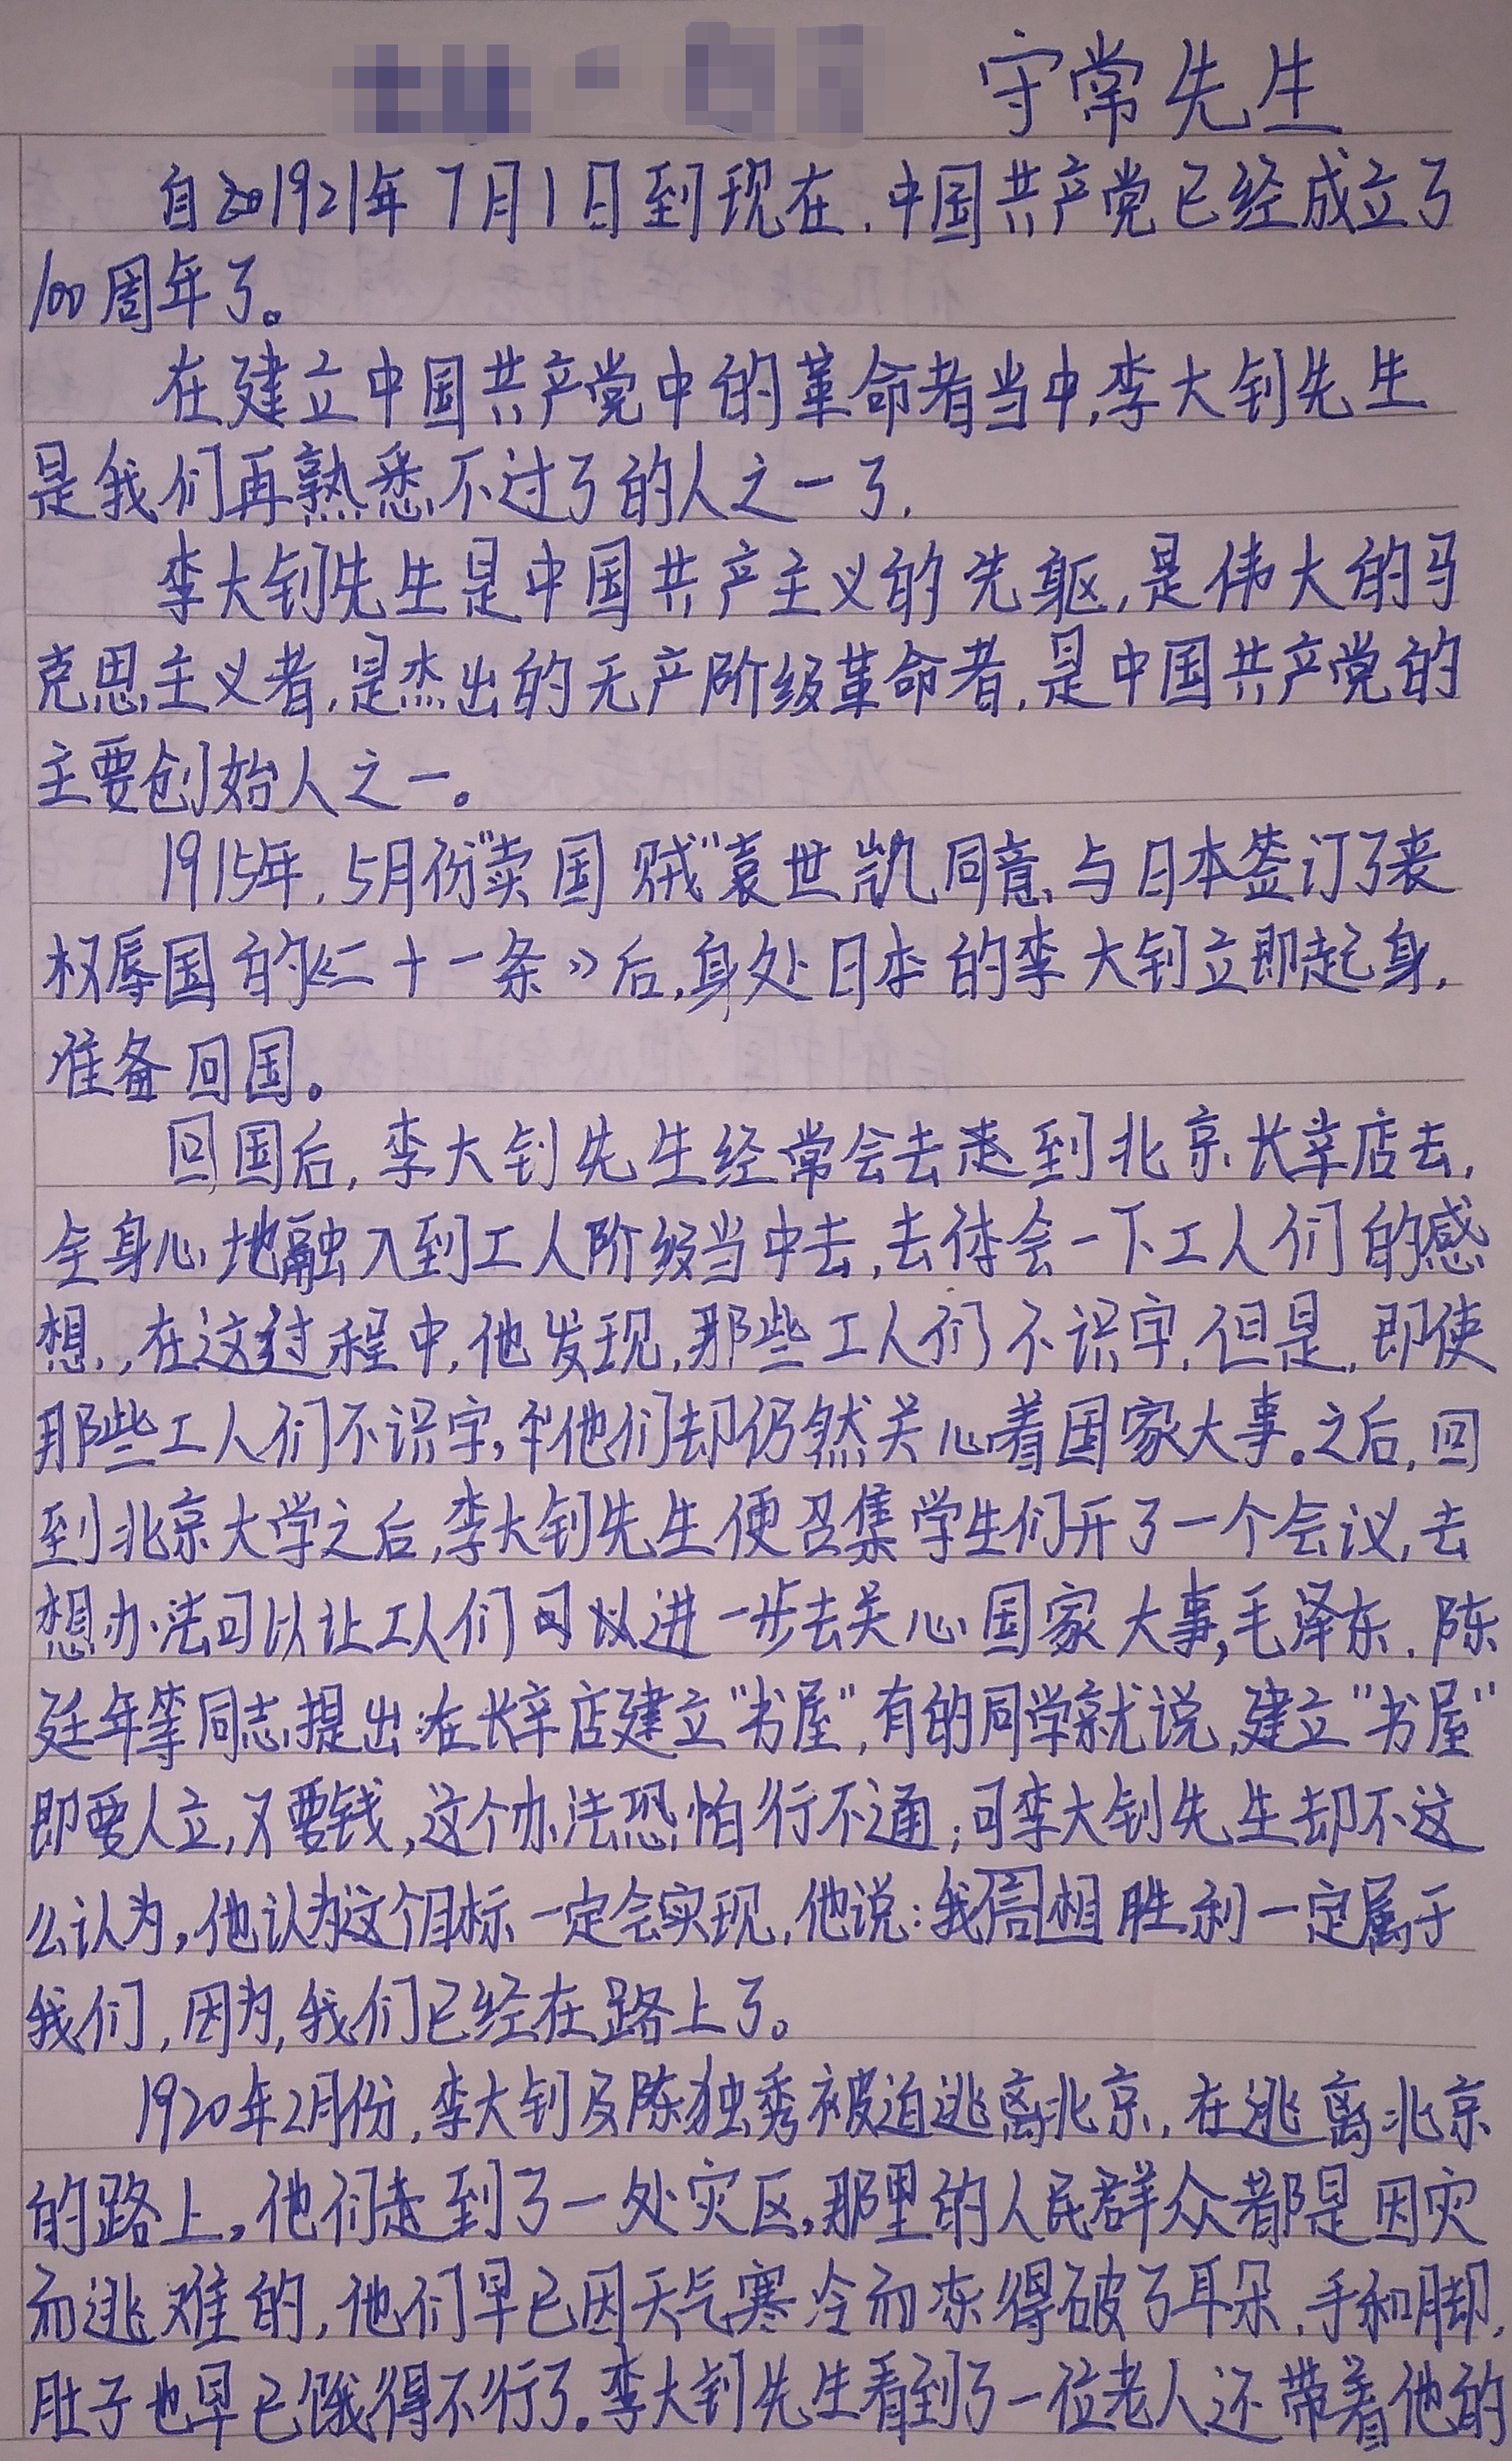 守常先生
自1921年7月1日到现在,中国共产党已经成立了
100周年了。
在建立中国共产党中的革命者当中,李大钊先生
是我们再熟悉不过了的人之一了.
李大钊先生是中国共产主义的先躯,是伟大的马
克思主义者,是杰出的无产阶级革命者,是中国共产党的
主要创始人之一。
1915年,5月份“卖国贼”袁世凯同意与日本签订了丧
权辱国的《二十一条》后,身处日本的李大钊立即起身,
准备回国。
回国后,李大钊先生经常会去走到北京长辛店去,
全身心地融入到工人阶级当中去,去体会一下工人们的感
想,在这过程中,他发现,那些工人们不识字,但是,即使
那些工人们不识字,他们却仍然关心着国家大事。之后,回
到北京大学之后,李大钊先生便召集学生们开了一个会议,去
想办法可以让工人们可以进一步去关心国家大事,毛泽东、陈
延年等同志提出:在长辛店建立“书屋”,有的同学就说,建立“书屋”
即要人立,又要钱,这个办法恐怕行不通;可李大钊先生却不这
么认为,他认为这个目标一定会实现,他说:我相信胜利一定属于
我们,因为,我们已经在路上了。
1920年2月份,李大钊及陈独秀被迫逃离北京,在逃离北京
的路上,他们走到了一处灾区,那里的人民群众都是因灾
而逃难的,他们早已因天气寒冷而冻得破了耳朵、手和脚,
肚子也早已饿得不行了。李大钊先生看到了一位老人还带着他的